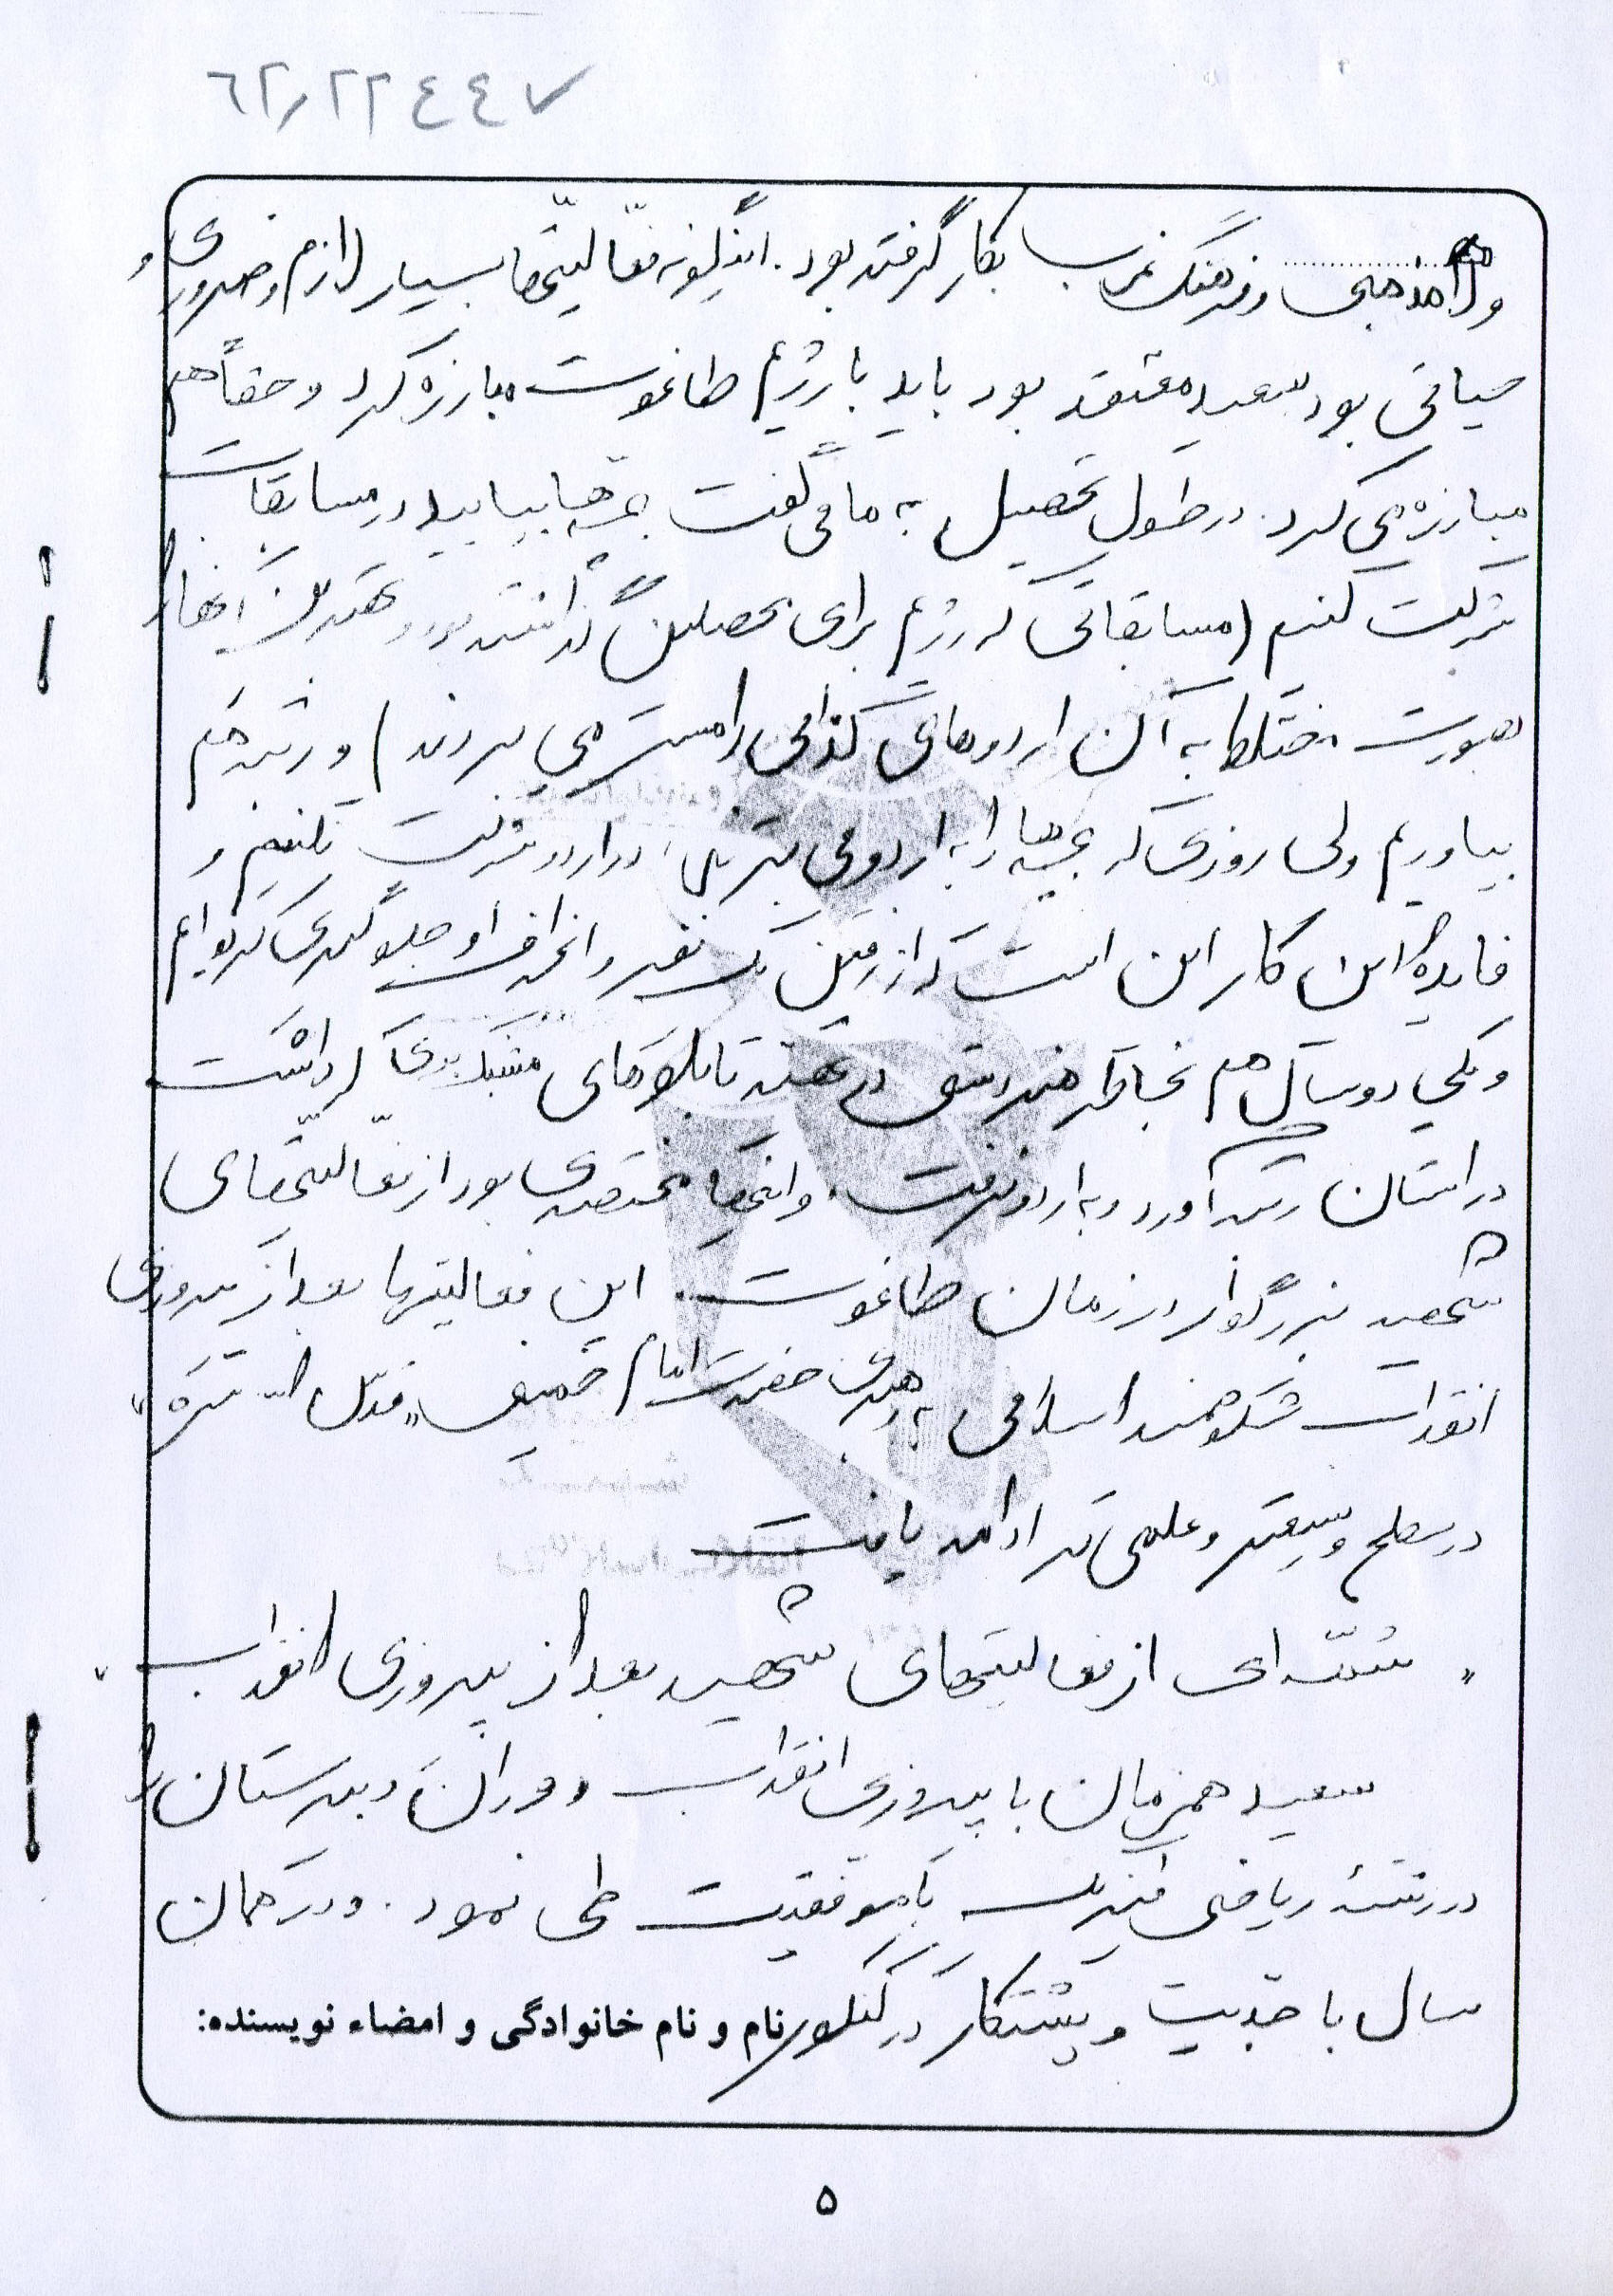 ٦٢٫٢٢٤٤٧
و مذهبی و فرهنگ غرب بکار گرفته بود. اینگونه فعّالیّتها بسیار لازم و ضروری و
حیاتی بود سعید معتقد بود باید با رژیم طاغوت مبارزه کرد و حقاً هم
مبارزه می کرد. در طول تحصیل به ما می گفت بچه ها بیایید در مسابقات
شرکت کنیم (مسابقاتی که رژیم برای محصلین گذاشته بود و آنها را
بصورت مختلط به آن اردوهای کذائی رامسر می بردند) و رتبه هم
بیاوریم ولی روزی که بچه ها را به اردو می برند، در اردو شرکت نکنیم و
فایده این کار این است که از رفتن یک نفر و انحراف او جلوگیری کرده ایم
و یکی دو سال هم بخاطر هنر در تهیه تابلوهای مشبک کاری که داشت
در استان رتبه آورد و به اردو نرفت. و اینها مختصری بود از فعّالیّتهای
شهید بزرگوار در زمان طاغوت. این فعالیتها بعد از پیروزی
انقلاب شکوهمند اسلامی به رهبری حضرت امام خمینی «قدس الله سره»
در سطح وسیعتر و علمی تر ادامه یافت
" شمّه ای از فعالیتهای شهید بعد از پیروزی انقلاب "
سعید همزمان با پیروزی انقلاب دوران دبیرستان را
در رشته ریاضی فیزیک با موفقیت طی نمود. و در همان
سال با جدیت و پشتکار در کنکور نام و نام خانوادگی و امضاء نویسنده:
۵